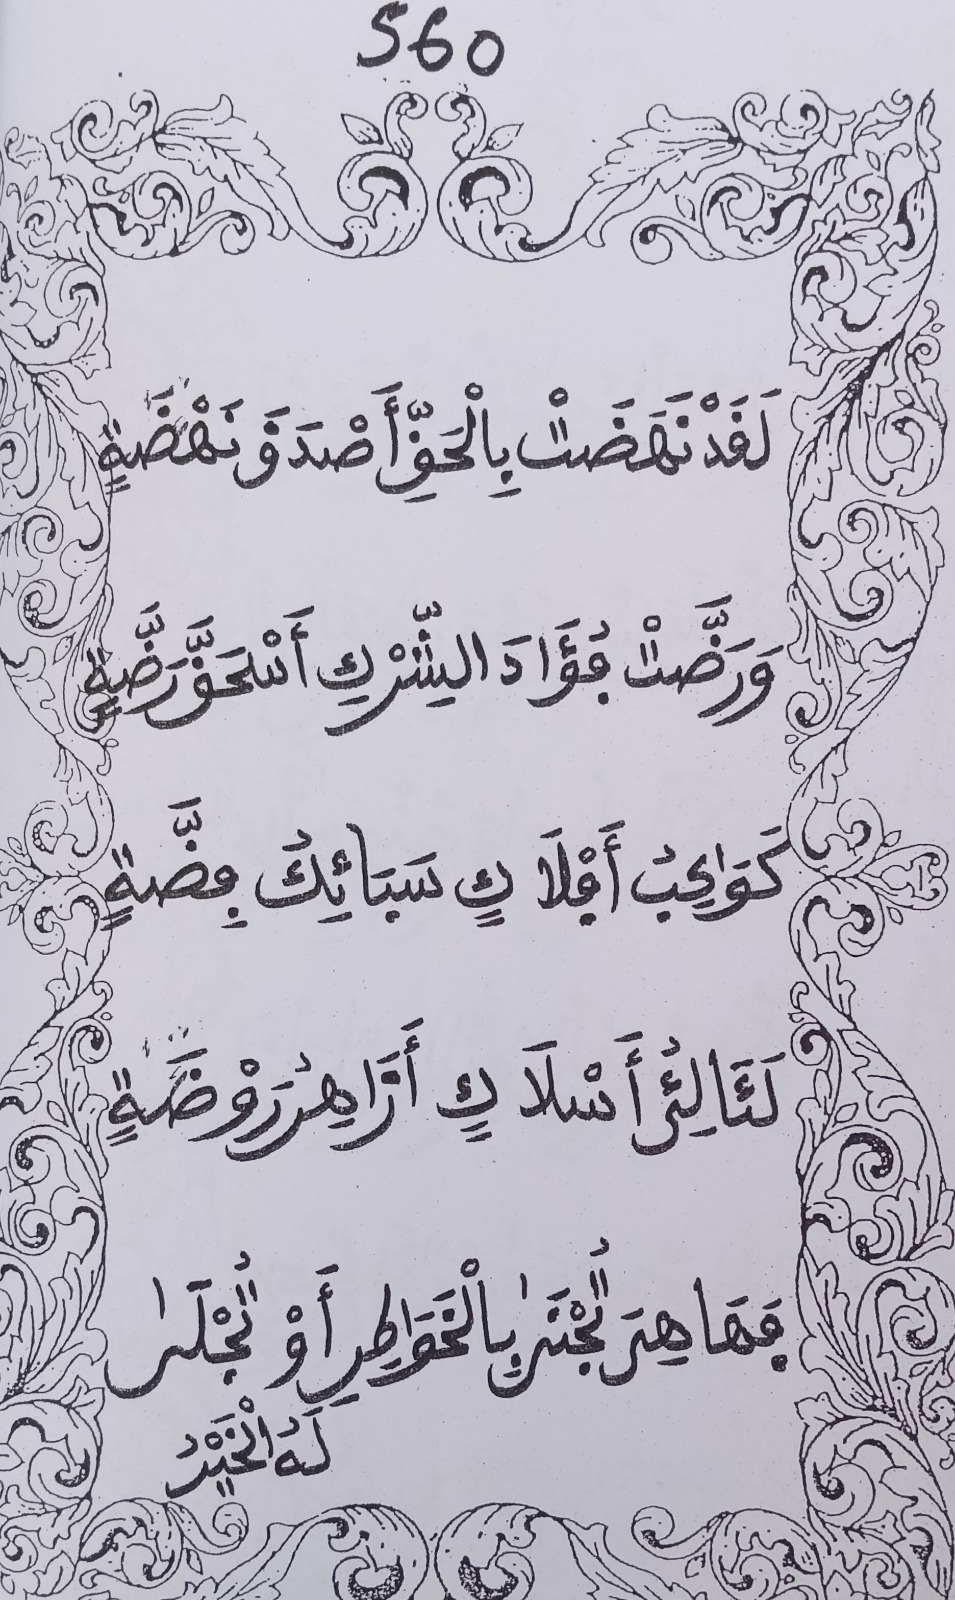 560
لَقَدْ نَهَضَتْ بِالْحَقِّ أَصْدَقَ نَهْضَةٍ
وَرَضَّتْ فُؤَادَ الشِّرْكِ أَسْحَقَ رَضَّةٍ
كَوَاكِبُ أَفْلَاكٍ سَبَائِكُ فِضَّةٍ
لَئَالِئُ أَسْلَاكٍ أَزَاهِرُ رَوْضَةٍ
فَهَا هِيَ تُجْنَى بِالْخَوَاطِرِ أَوْ تُجْلَى
لَهُ الْخَيْرُ